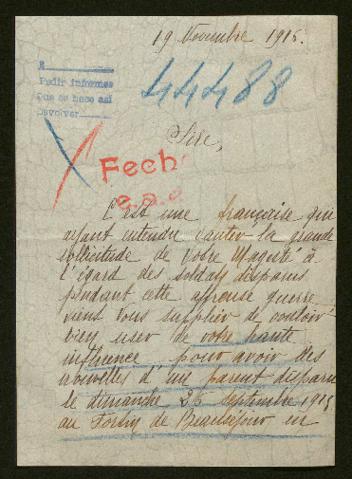 19 Novembre 1915.
A
Pedir informes
Que se hace así
Devolver
44488
Sire,
Fech
e.a.
C'est une française qui
ayant entendu vanter la grande
sollicitude de Votre Majesté à
l'égard des soldats disparus
pendant cette affreuse guerre
vient vous supplier de vouloir
bien user de votre haute
influence pour avoir des
nouvelles d'un parent disparu
le dimanche 26 septembre 1915
au Fortin de Beauséjour en